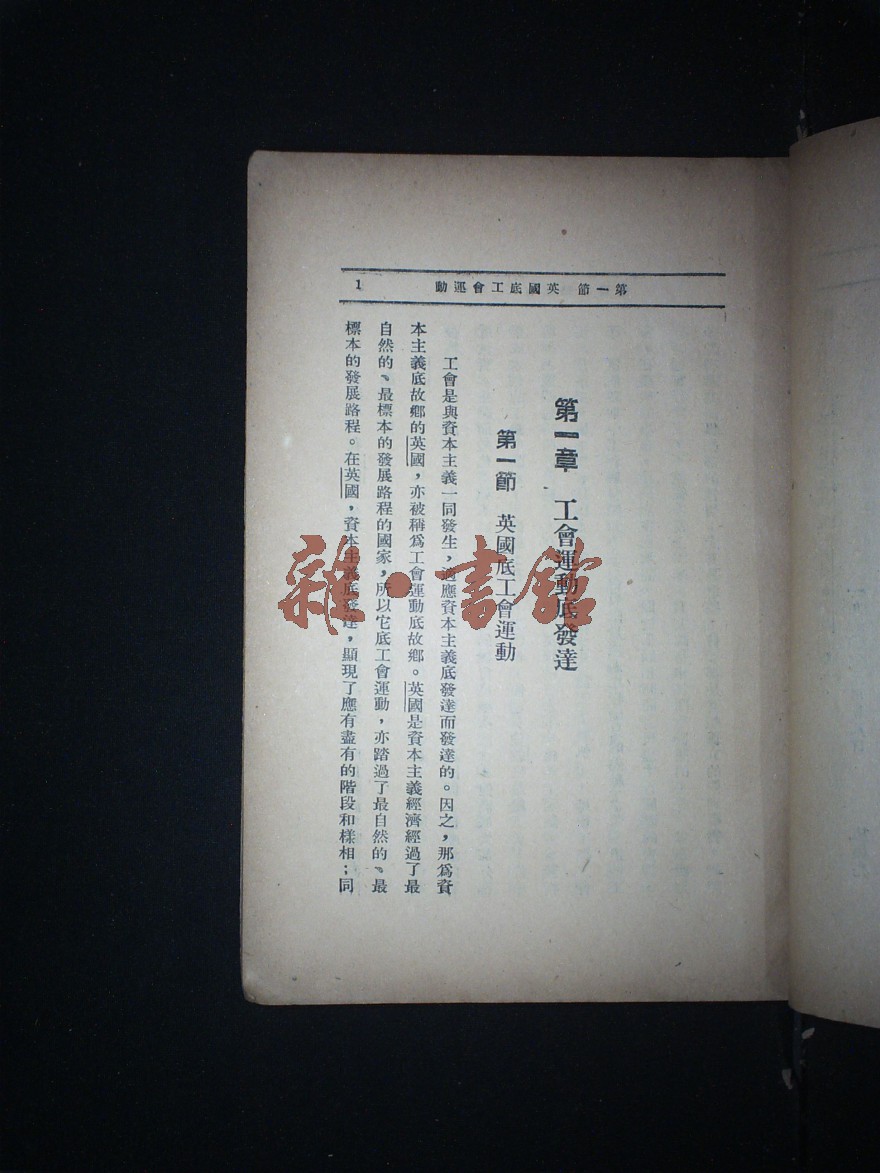 第一節 英國底工會運動 1
第一章 工會運動底發達
第一節 英國底工會運動
工會是與資本主義一同發生，適應資本主義底發達而發達的。因之，那爲資
本主義底故鄉的英國，亦被稱爲工會運動底故鄉。英國是資本主義經濟經過了最
自然的、最標本的發展路程的國家，所以它底工會運動，亦踏過了最自然的、最
標本的發展路程。在英國，資本主義底發達，顯現了應有盡有的階段和樣相；同
雜·書館